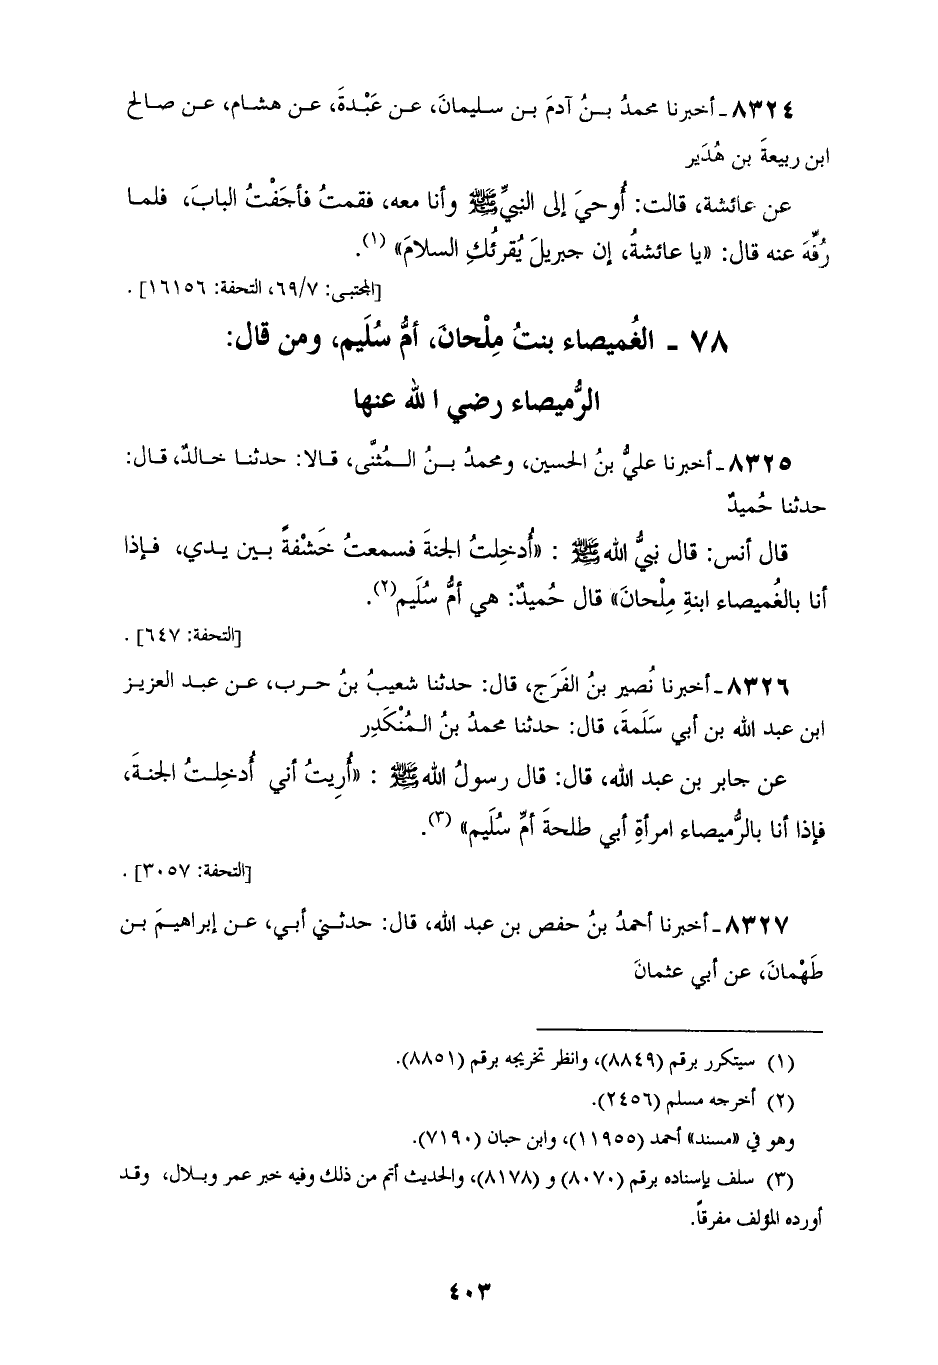 ٨٣٢٤ـ أخبرنا محمدُ بـنُ آدمَ بـن سـليمانَ، عـن عَبْدةَ، عـن هشـام، عـن صـالح
ابن ربيعةَ بن هُدَير
عن عـائشة، قالت: أُوحيَ إلى النبيِّ ﷺ وأنا معه، فقمتُ فأجَفْتُ البابَ، فلمـا
رُفِّهَ عنه قال: «يا عائشةُ، إن جبريلَ يُقرئُكِ السلامَ»(١).
[المجتبى: ٦٩/٧، التحفة: ١٦١٥٦] .
٧٨ ـ الغُميصاء بنتُ مِلْحانَ، أمُّ سُلَيم، ومن قال:
الرُّميصاء رضي الله عنها
٨٣٢٥ـ أخبرنا عليُّ بنُ الحسين، ومحمدُ بـنُ الـمُثنَّى، قـالا: حدثنـا خـالدٌ، قـال:
حدثنا حُميدٌ
قال أنس: قال نبيُّ الله ﷺ : «أُدخِلتُ الجنةَ فسمعتُ خَشْفةً بـين يـدي، فـإذا
أنا بالغُميصاء ابنةِ مِلْحانَ» قال حُميدٌ: هي أمُّ سُلَيم(٢).
[التحفة: ٦٤٧] .
٨٣٢٦ـ أخبرنا نُصير بنُ الفَرَج، قال: حدثنا شعيبُ بنُ حـرب، عـن عبـد العزيـز
ابن عبد الله بن أبي سَلَمةَ، قال: حدثنا محمدُ بنُ الـمُنْكَدِر
عن جابر بن عبد الله، قال: قال رسولُ الله ﷺ : «أُرِيتُ أني أُدخِلـتُ الجنـةَ،
فإذا أنا بالرُّميصاء امرأةِ أبي طلحةَ أمِّ سُلَيم» (٣).
[التحفة: ٣٠٥٧] .
٨٣٢٧ـ أخبرنا أحمدُ بنُ حفص بن عبد الله، قال: حدثـني أبـي، عـن إبراهيـمَ بـن
طَهْمانَ، عن أبي عثمانَ
(١) سيتكرر برقم (٨٨٤٩)، وانظر تخريجه برقم (٨٨٥١).
(٢) أخرجه مسلم (٢٤٥٦).
وهو في «مسند» أحمد (١١٩٥٥)، وابن حبان (٧١٩٠).
(٣) سلف بإسناده برقم (٨٠٧٠) و (٨١٧٨)، والحديث أتم من ذلك وفيه خبر عمر وبـلال، وقـد
أورده المؤلف مفرقاً.
٤٠٣